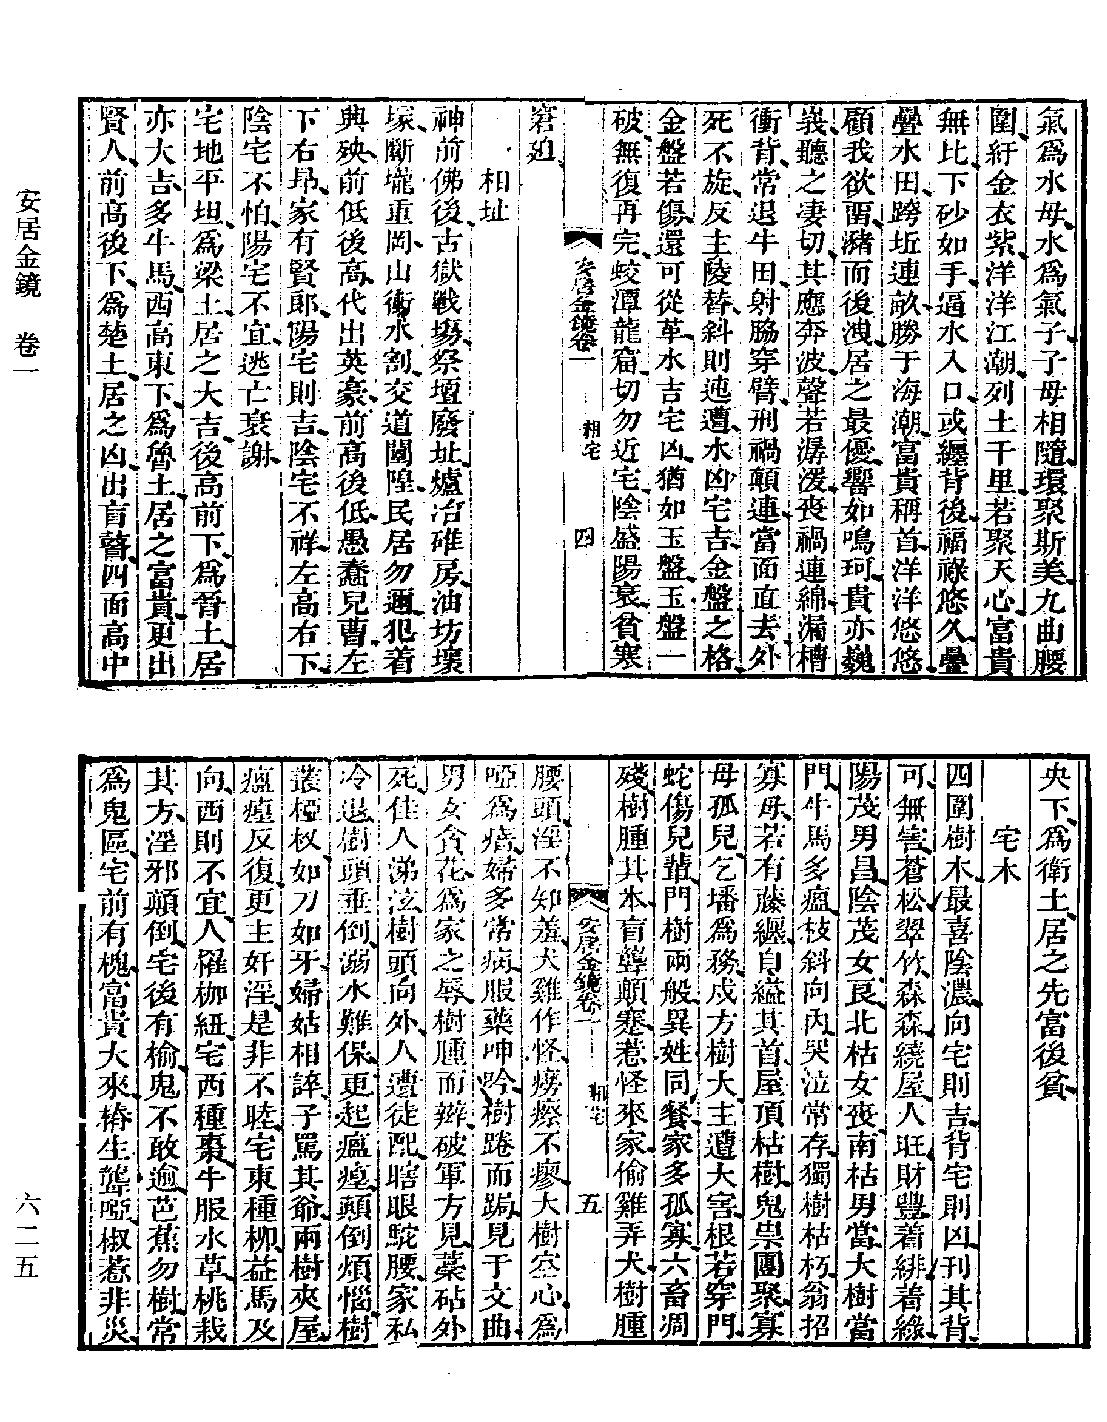 安居金鏡　卷一
氣爲水母水爲氣子子母相隨環聚斯美九曲腰
圍紆金衣紫洋洋江潮列土千里若聚天心富貴
無比下砂如手逼水入口或纏背後福祿悠久疊
疊水田跨坵連畝勝于海潮富貴稱首洋洋悠悠
顧我欲畱瀦而後洩居之最優響如鳴珂貴亦巍
峩聽之凄切其應奔波聲若潺湲喪禍連綿漏槽
衝背常退牛田射脇穿臂刑禍顛連當面直去外
死不旋反主陵替斜則迍邅水凶宅吉金盤之格
金盤若傷還可從革水吉宅凶猶如玉盤玉盤一
破無復再完蛟潭龍窟切勿近宅陰盛陽衰貧寒
安居金鏡卷一　相宅　四
窘迫
相址
神前佛後古獄戰塲祭壇廢址爐冶碓房油坊壞
塚斷壠重岡山衝水割交道闤隍民居勿邇犯着
典殃前低後高代出英豪前高後低愚蠢兒曹左
下右昻家有賢郎陽宅則吉陰宅不祥左高右下
陰宅不怕陽宅不宜逃亡衰謝
宅地平坦爲梁土居之大吉後高前下爲晉土居
亦大吉多牛馬西高東下爲魯土居之富貴更出
賢人前高後下爲楚土居之凶出盲瞽四面高中
央下爲衛土居之先富後貧
宅木
四圍樹木最喜陰濃向宅則吉背宅則凶刊其背
可無害蒼松翠竹森森繞屋人旺財豐着緋着綠
陽茂男昌陰茂女良北枯女喪南枯男當大樹當
門牛馬多瘟枝斜向內哭泣常存獨樹枯朽翁招
寡母若有藤纏自縊其首屋頂枯樹鬼祟團聚寡
母孤兒乞墦爲務戍方樹大主遭大害根若穿門
蛇傷兒輩門樹兩般異姓同餐家多孤寡六畜凋
殘樹腫其本盲聾顛蹇惹怪來家偷雞弄犬樹腫
安居金鏡卷一　相宅　五
腰頭淫不知羞犬雞作怪癆瘵不瘳大樹空心爲
啞爲瘖婦多常病服藥呻吟樹踡而跼見于文曲
男女貪花爲家之辱樹腫而辮破軍方見藁砧外
死佳人涕泣樹頭向外人遭徒配瞎眼駝腰家私
冷退樹頭垂倒溺水難保更起瘟㾮顛倒煩惱樹
叢椏杈如刀如牙婦姑相誶子罵其爺兩樹夾屋
瘟㾮反復更主奸淫是非不睦宅東種柳益馬及
向西則不宜人羅枷紐宅西種棗牛服水草桃栽
其方淫邪顛倒宅後有榆鬼不敢逾芭蕉勿樹常
爲鬼區宅前有槐富貴大來椿生聾啞椒惹非災
六二五